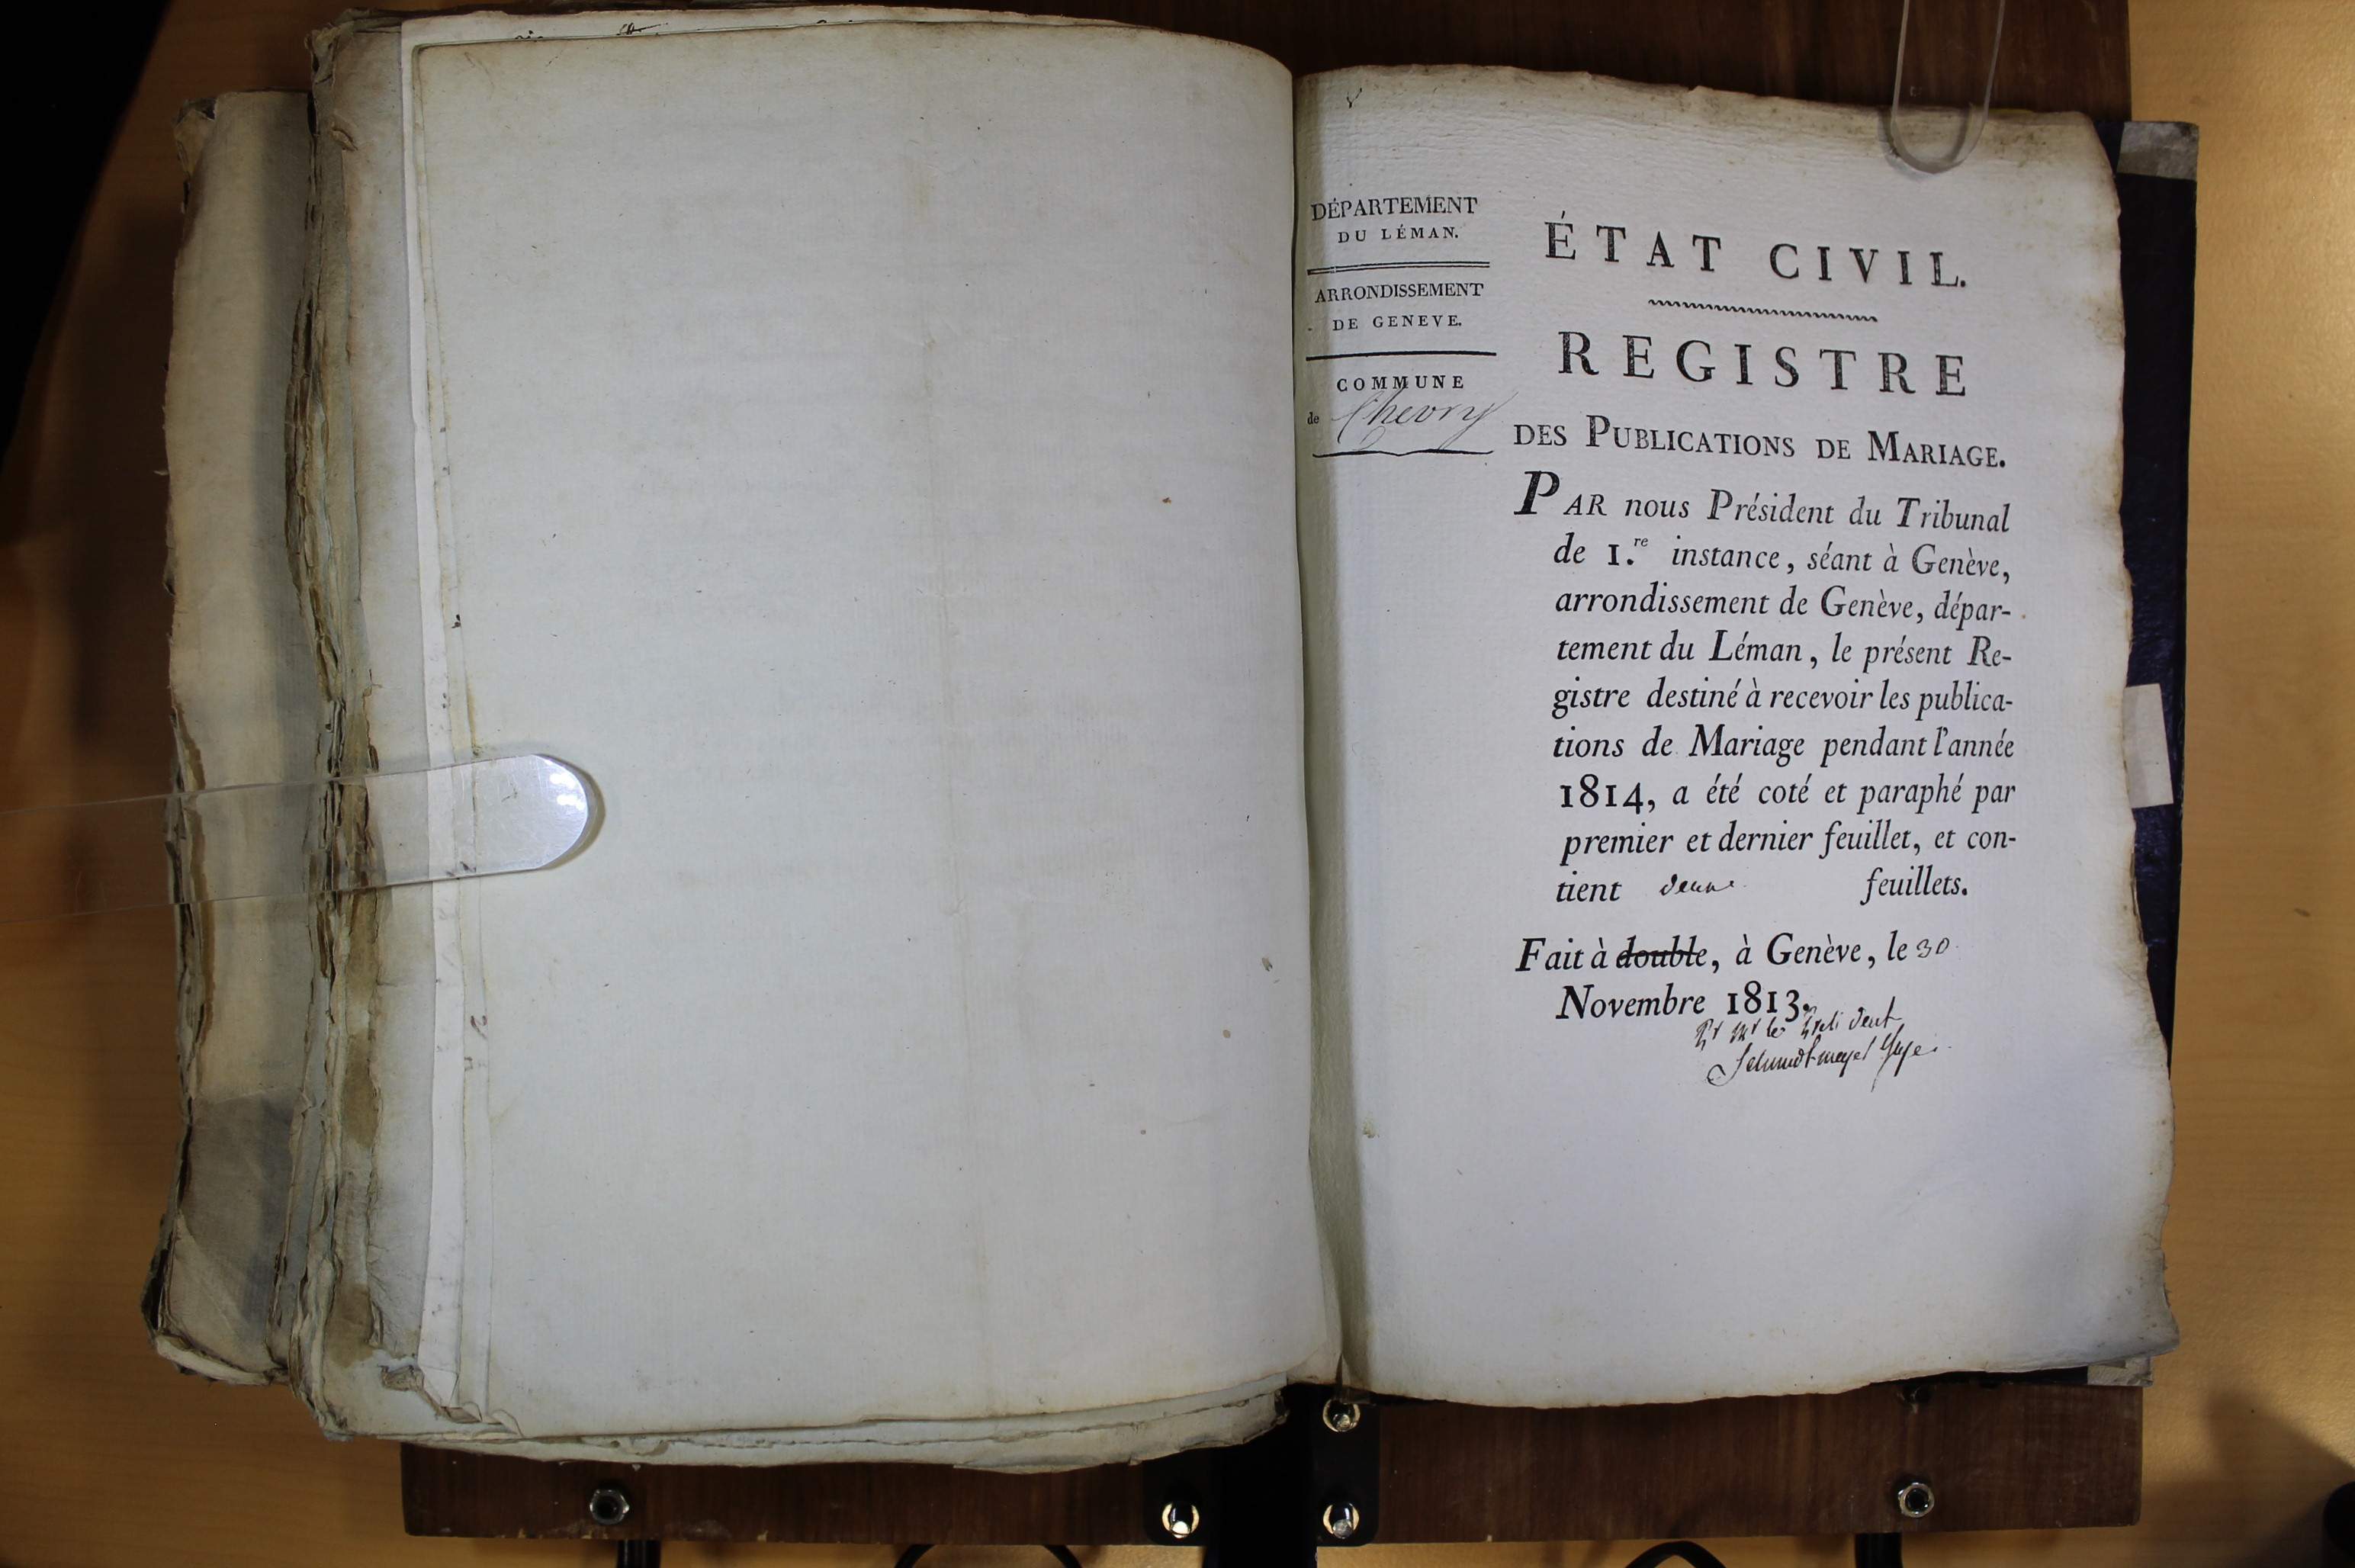 DÉPARTEMENT
DU LÉMAN.
ARRONDISSEMENT
DE GENEVE.
COMMUNE
de Chevry
ÉTAT CIVIL.
REGISTRE
DES PUBLICATIONS DE MARIAGE.
PAR nous Président du Tribunal
de 1.re instance, séant à Genève,
arrondissement de Genève, dépar-
tement du Léman, le présent Re-
gistre destiné à recevoir les publica-
tions de Mariage pendant l'année
1814, a été coté et paraphé par
premier et dernier feuillet, et con-
tient deux feuillets.
Fait à double, à Genève, le 30
Novembre 1813.
Pr Mr le Président
Schmidtmeyer Juge